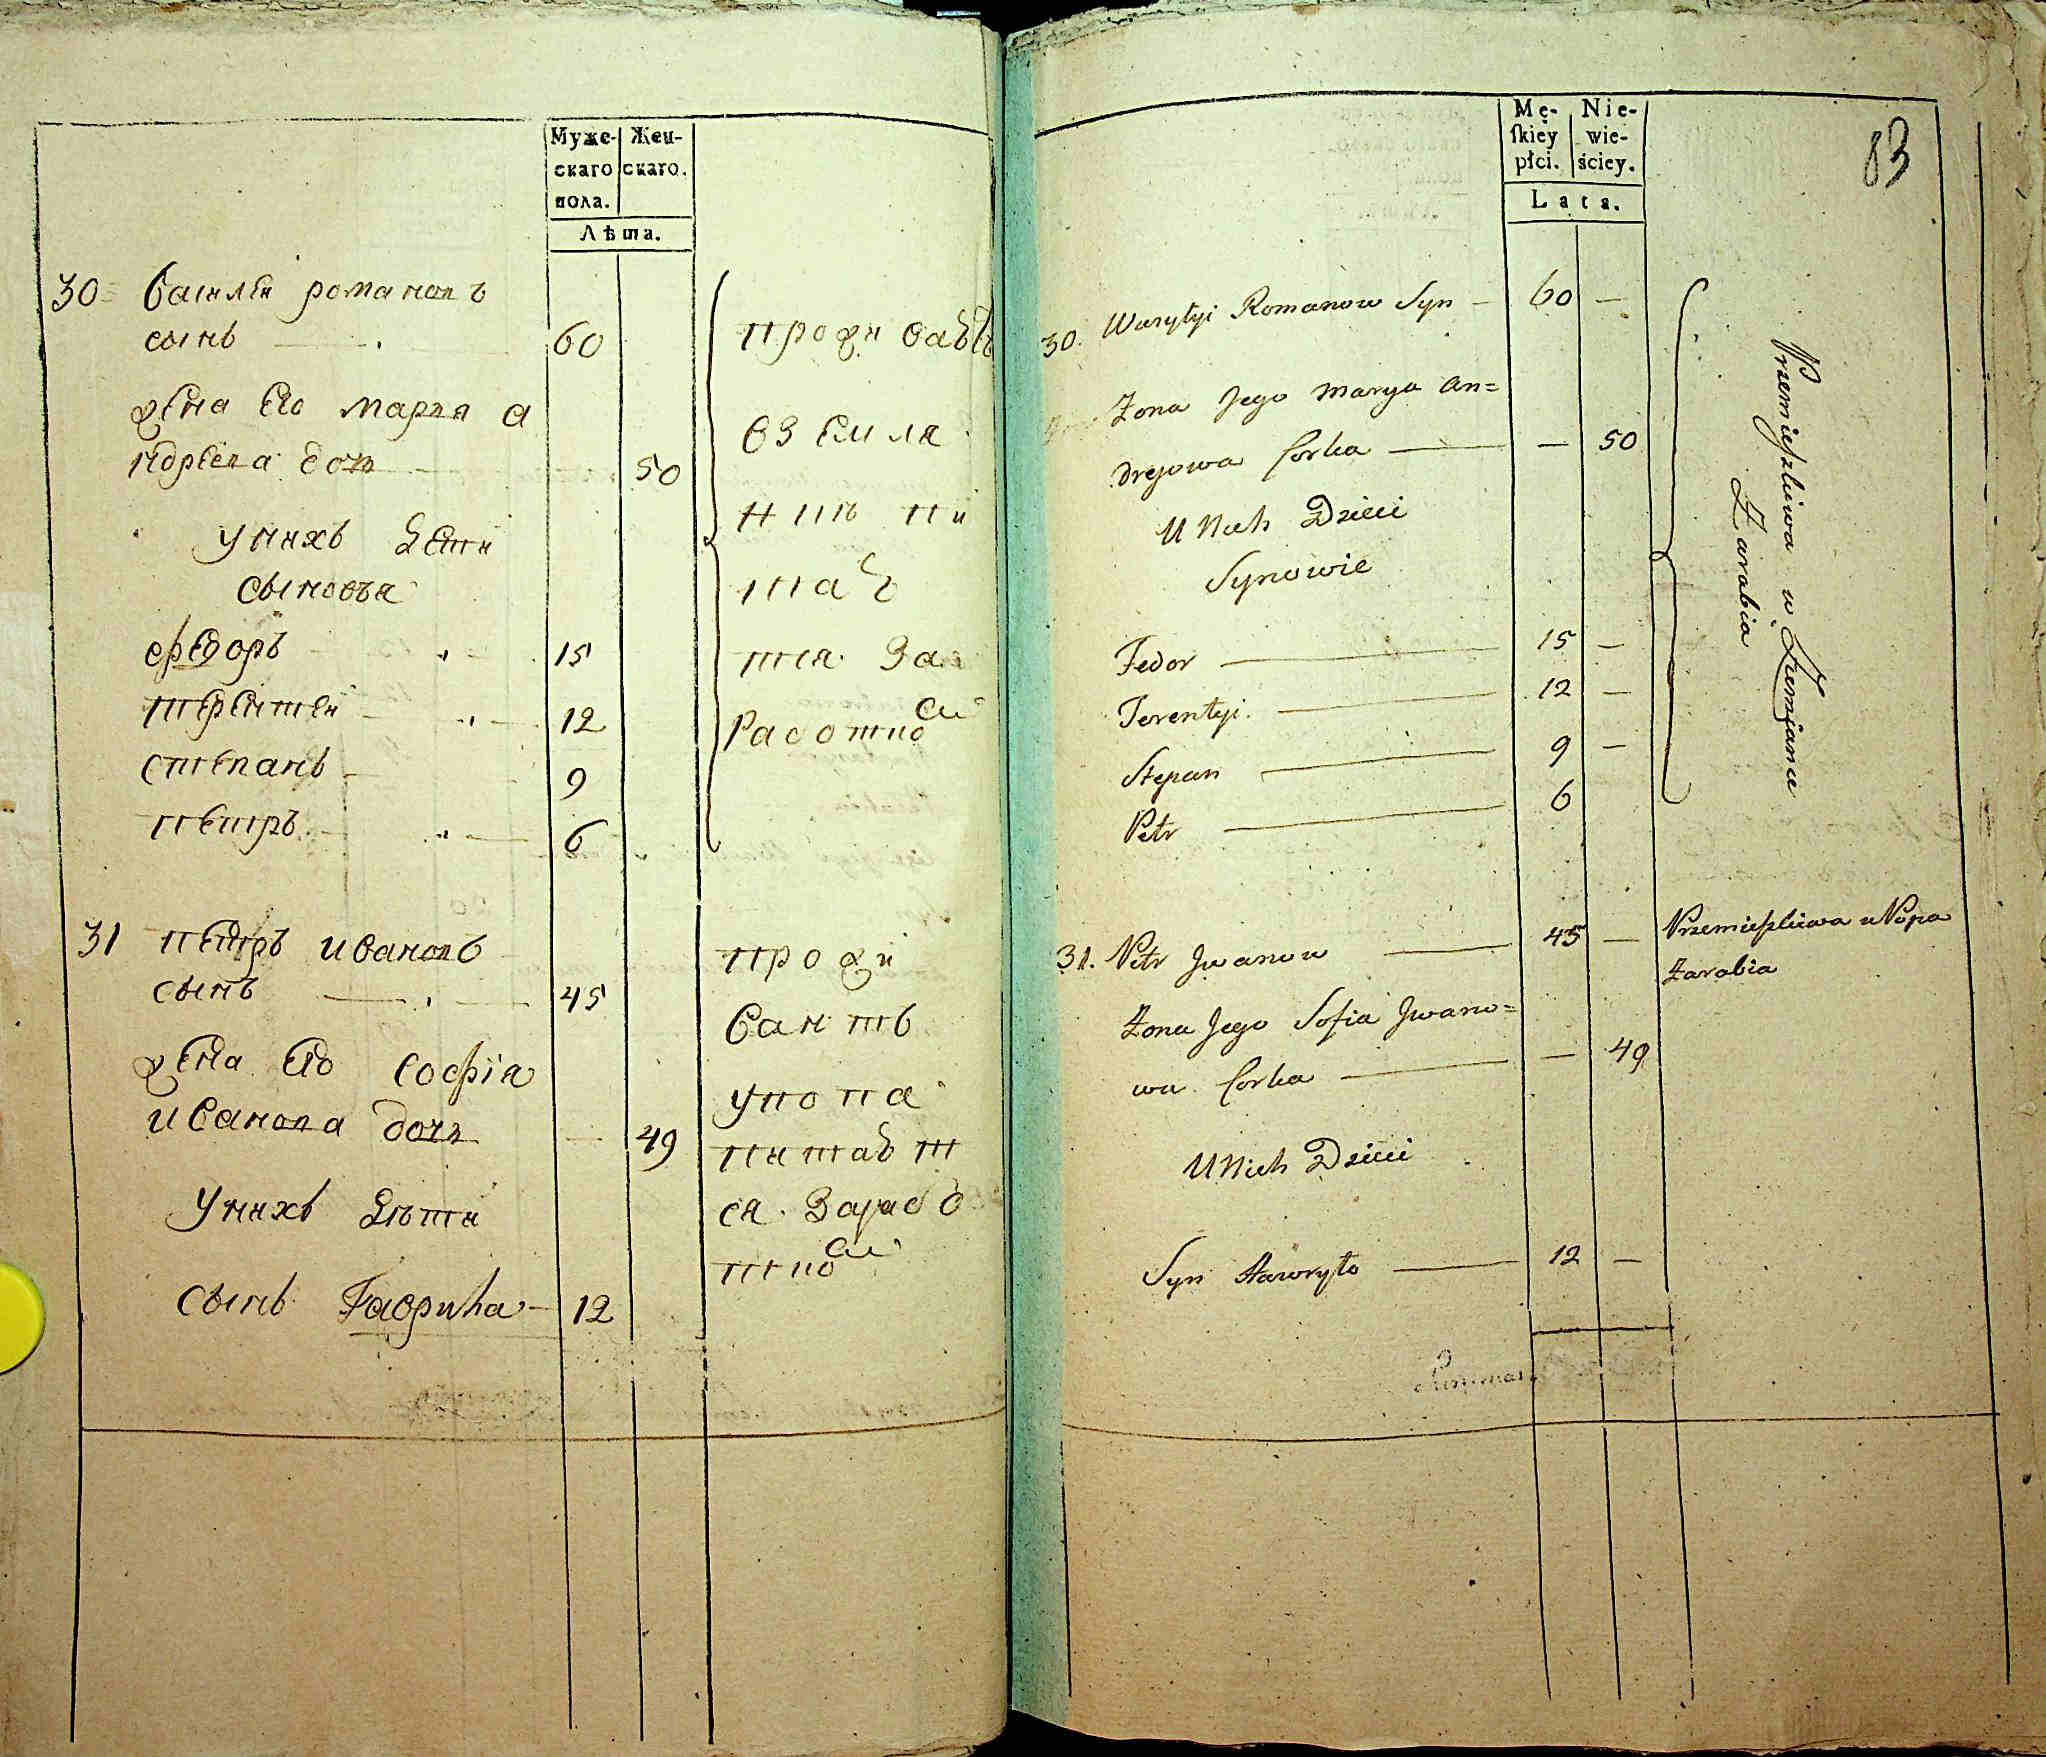 Муже-
скаго
пола.
Жен-
скаго.
Лѣта.
30 василеи романовъ
сынъ 60
жена его марья а
ндреева дочь 50
у нихъ дети
сыновья
ѳедоръ 15
терентеи 12
степанъ 9
петръ 6
прожи ваетъ
в земля
нкѣ пи
тает
тся За
Работкои
31 петръ ивановъ
сынъ 45
жена его софiя
иванова дочь 49
у нихъ дѣти
сынъ Гаврила 12
прожи
ваитъ
у попа
питает
ся Зарабо
ткои
83
Mę-
ſkiey
płci.
Nie-
wie-
ściey.
Lata.
30. Wasyłyi Romanow Syn – 60 –
Zona Jego Marya An=
drejowa Corka — – 50
U Nich Dzieci
Synowie
Fedor — 15 –
Terentyi. — 12 –
Stepan — 9 –
Petr — 6
Przemieszkiwa w Ziemiance
Zarabia
31. Petr Jwanow — 45 –
Zona Jego Sofia Jwano=
wa Corka — – 49
U Nich Dzieci
Syn Hawryło — 12 –
Przemieszkiwa u Popa
Zarabia
Summa